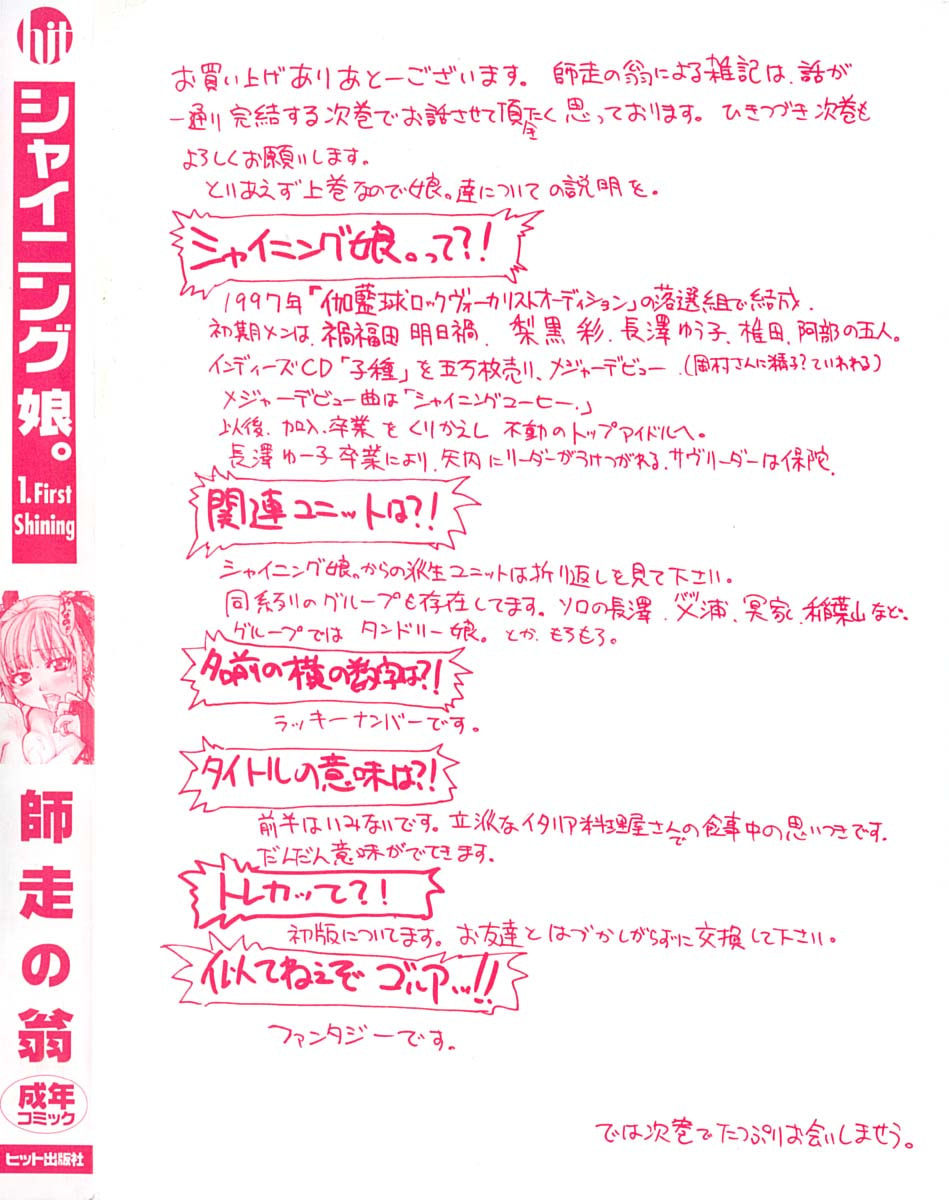 hit
シャイニング娘。
1.First
Shining
師走の翁
成年
コミック
ヒット出版社
お買い上げありあとーございます。 師走の翁による雑記は、話が
一通り完結する次巻でお話させて頂たく思っております。 ひきつづき次巻も
よろしくお願いします。
とりあえず上巻なので娘。達についての説明を。
シャイニング娘。って?!
1997年「伽藍球ロックヴォーカリストオーディション」の落選組で結成、
初期メンは、禍福田 明日禍、 梨黒 彩、長澤ゆう子、椎田、阿部の五人。
インディーズCD「子種」を五万枚売り、メジャーデビュー、(岡村さんに精子?ていわれる)
メジャーデビュー曲は「シャイニングコーヒー。」
以後、加入、卒業をくりかえし 不動のトップアイドルへ。
長澤ゆー子卒業により、矢内にリーダーがうけつがれる、サヴリーダーは保陀、
関連ユニットは?!
シャイニング娘。からの派生ユニットは折り返しを見て下さい。
同系列のグループも存在してます。ソロの長澤、 浦、冥家、稲葉山など、
グループでは タンドリー娘。とか、もろもろ。
名前の横の数字は?!
ラッキーナンバーです。
タイトルの意味は?!
前半はいみないです。立派なイタリア料理屋さんでの食事中の思いつきです。
だんだん意味がでてきます。
トレカッて?!
初版についてます。お友達とはづかしがらずに交換して下さい。
似てねぇぞ ゴルアッ!!
ファンタジーです。
では次巻でたっぷりお会いしませう。